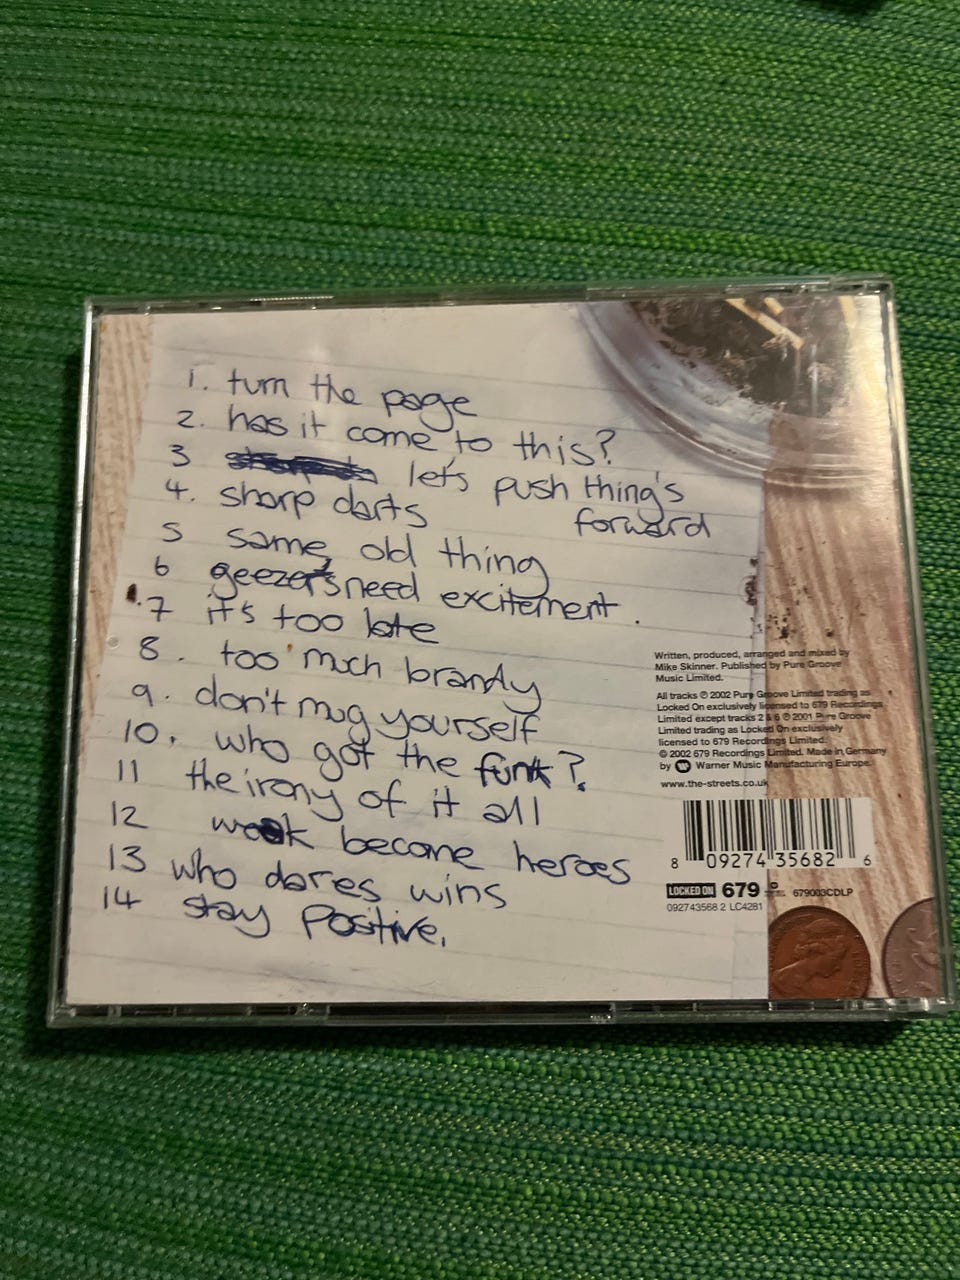 1. turn the page
2. has it come to this?
3 let's push thing's
forward
4. sharp darts
5 same old thing
6 geezers need excitement.
7 it's too late
8. too much brandy
9. don't mug yourself
10. who got the funk?
11 the irony of it all
12 weak become heroes
13 who dares wins
14 stay positive.
Written, produced, arranged and mixed by
Mike Skinner. Published by Pure Groove
Music Limited.
All tracks ℗ 2002 Pure Groove Limited trading as
Locked On exclusively licensed to 679 Recordings
Limited except tracks 2 & 6 ℗ 2001 Pure Groove
Limited trading as Locked On exclusively
licensed to 679 Recordings Limited.
© 2002 679 Recordings Limited. Made in Germany
by Warner Music Manufacturing Europe.
www.the-streets.co.uk
8 09274 35682 6
LOCKED ON 679 679003CDLP
092743568 2 LC4281